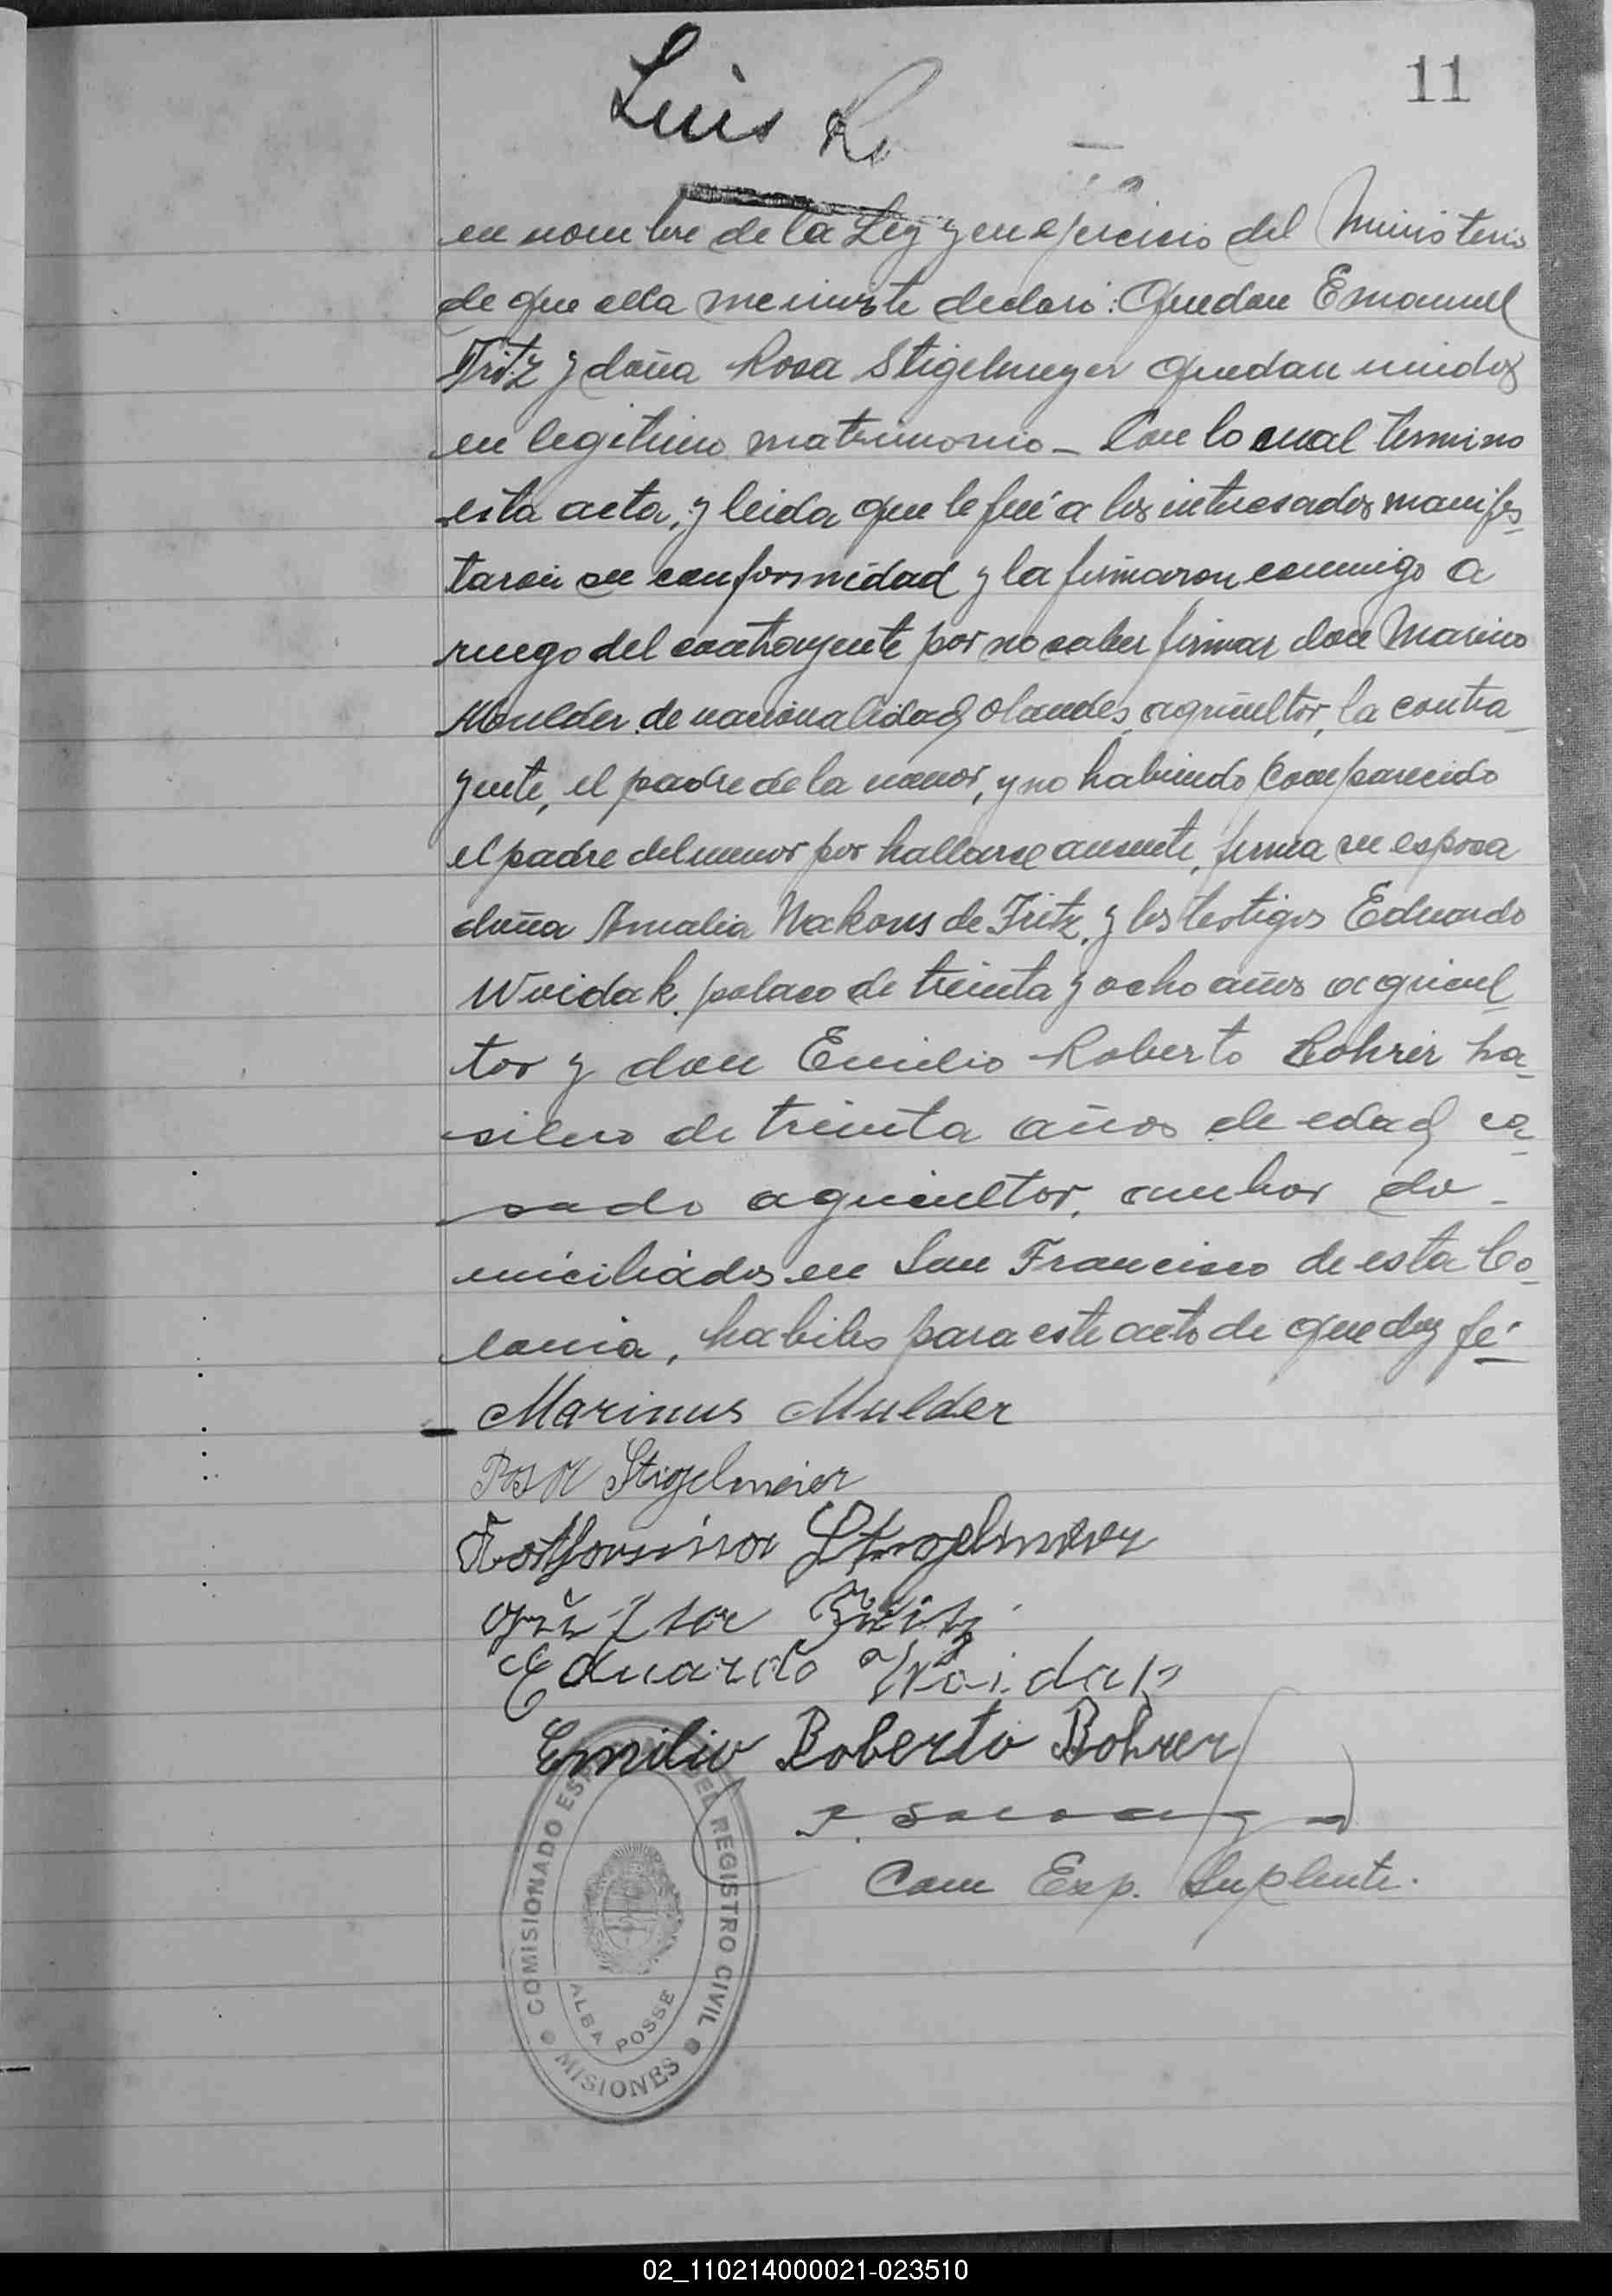 11
Luis R
en nombre de la Ley y en ejercicio del Ministerio
de que ella me inviste declaré: Quedan Emanuel
Fritz y doña Rosa Stigelmeyer quedan unidos
en legitimo matrimonio - Con lo cual termino
esta acta, y leida que le fué a los interesados manifes-
taron su conformidad y la firmaron conmigo a
ruego del contrayente por no saber firmar don Marino
Moulder de nacionalidad olandes, agricultor, la contra
yente, el padre de la menor, y no habiendo comparecido
el padre del menor por hallarse ausente, firma su esposa
doña Amalia Nakons de Fritz, y los testigos Eduardo
Wvidak, polaco de treinta y ocho años agricul-
tor y don Emilio Roberto Bohrer bra-
silero de treinta años de edad ca-
sado agricultor, ambos do-
miciliados en San Francisco de esta Co-
lonia, habiles para este acto de que doy fé-
Marinus Mulder
Rosa Stigelmeier
Stigelmeier
Fritz
Eduardo Woidak
Emilio Roberto Bohrer
Com Esp. Suplente.
COMISIONADO ESP DEL REGISTRO CIVIL
ALBA POSSE
MISIONES
02_110214000021-023510